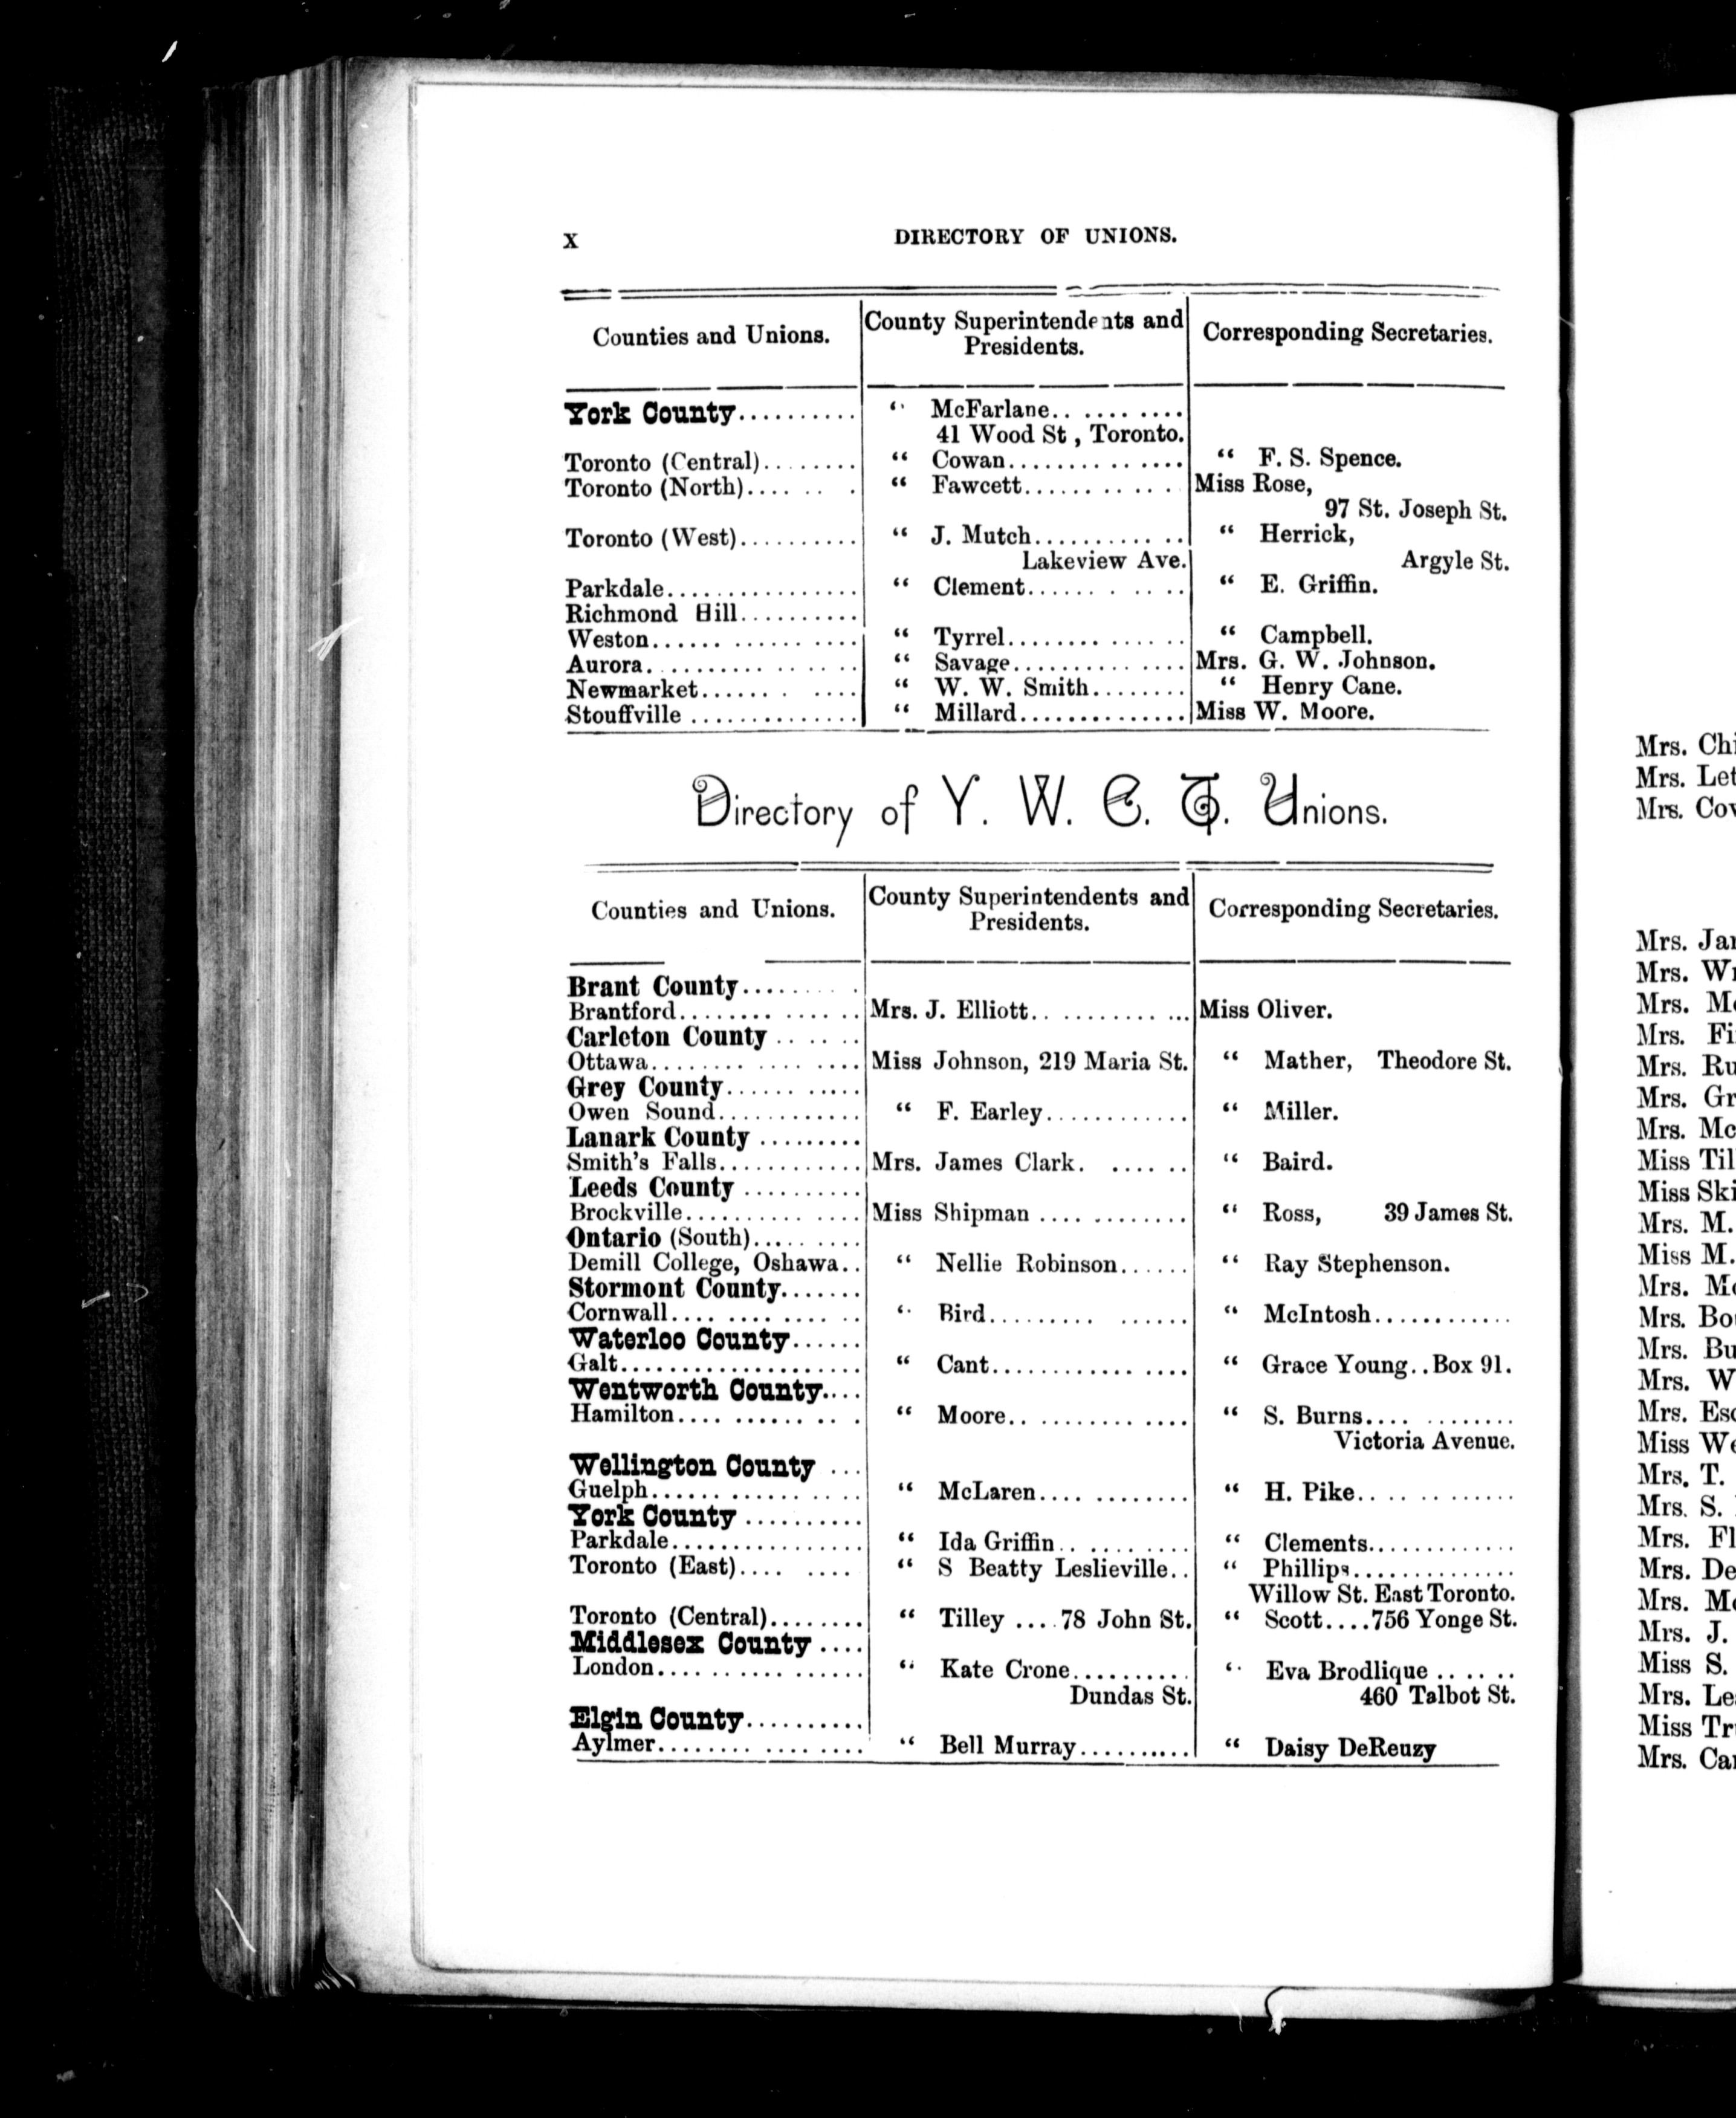 X DIRECTORY OF UNIONS.
Counties and Unions. County Superintendents and Presidents. Corresponding Secretaries.
York County.......... “ McFarlane.. ...... ....
41 Wood St , Toronto.
Toronto (Central)........ “ Cowan.............. “ F. S. Spence.
Toronto (North)...... .. . “ Fawcett............. Miss Rose,
97 St. Joseph St.
Toronto (West).......... “ J. Mutch............. “ Herrick,
Lakeview Ave. Argyle St.
Parkdale................ “ Clement...... . .... “ E. Griffin.
Richmond Hill..........
Weston...... ........... “ Tyrrel............... “ Campbell.
Aurora.................. “ Savage.............. Mrs. G. W. Johnson.
Newmarket....... .... “ W. W. Smith........ “ Henry Cane.
Stouffville .............. “ Millard.............. Miss W. Moore.
Directory of Y. W. C. T. Unions.
Counties and Unions. County Superintendents and Presidents. Corresponding Secretaries.
Brant County..........
Brantford........ ...... Mrs. J. Elliott.. ........... Miss Oliver.
Carleton County ......
Ottawa........ .. .... Miss Johnson, 219 Maria St. “ Mather, Theodore St.
Grey County...... .....
Owen Sound............ “ F. Earley............ “ Miller.
Lanark County .........
Smith's Falls............ Mrs. James Clark. ...... “ Baird.
Leeds County ..........
Brockville.............. Miss Shipman ............ “ Ross, 39 James St.
Ontario (South).........
Demill College, Oshawa.. “ Nellie Robinson...... “ Ray Stephenson.
Stormont County.......
Cornwall.... .... .... .. “ Bird......... ...... “ McIntosh............
Waterloo County......
Galt.................... “ Cant............ .... “ Grace Young..Box 91.
Wentworth County....
Hamilton.... ...... .. . “ Moore.. ........ .... “ S. Burns.... ........
Victoria Avenue.
Wellington County ...
Guelph...... ....... .... “ McLaren.... ........ “ H. Pike.............
York County ..........
Parkdale................ “ Ida Griffin.. ......... “ Clements............
Toronto (East).... .... “ S Beatty Leslieville.. “ Phillips..............
Willow St. East Toronto.
Toronto (Central)........ “ Tilley ....78 John St. “ Scott....756 Yonge St.
Middlesex County ....
London................. “ Kate Crone.......... “ Eva Brodlique ......
Dundas St. 460 Talbot St.
Elgin County..........
Aylmer........ .... .... “ Bell Murray.......... “ Daisy DeReuzy
Mrs.
Mrs.
Mrs.
Mrs.
Mrs.
Mrs.
Mrs.
Mrs.
Mrs.
Mrs.
Miss
Miss
Mrs. M.
Miss M.
Mrs.
Mrs.
Mrs.
Mrs.
Mrs.
Miss
Mrs. T.
Mrs. S.
Mrs.
Mrs.
Mrs.
Mrs. J.
Miss S.
Mrs.
Miss
Mrs.